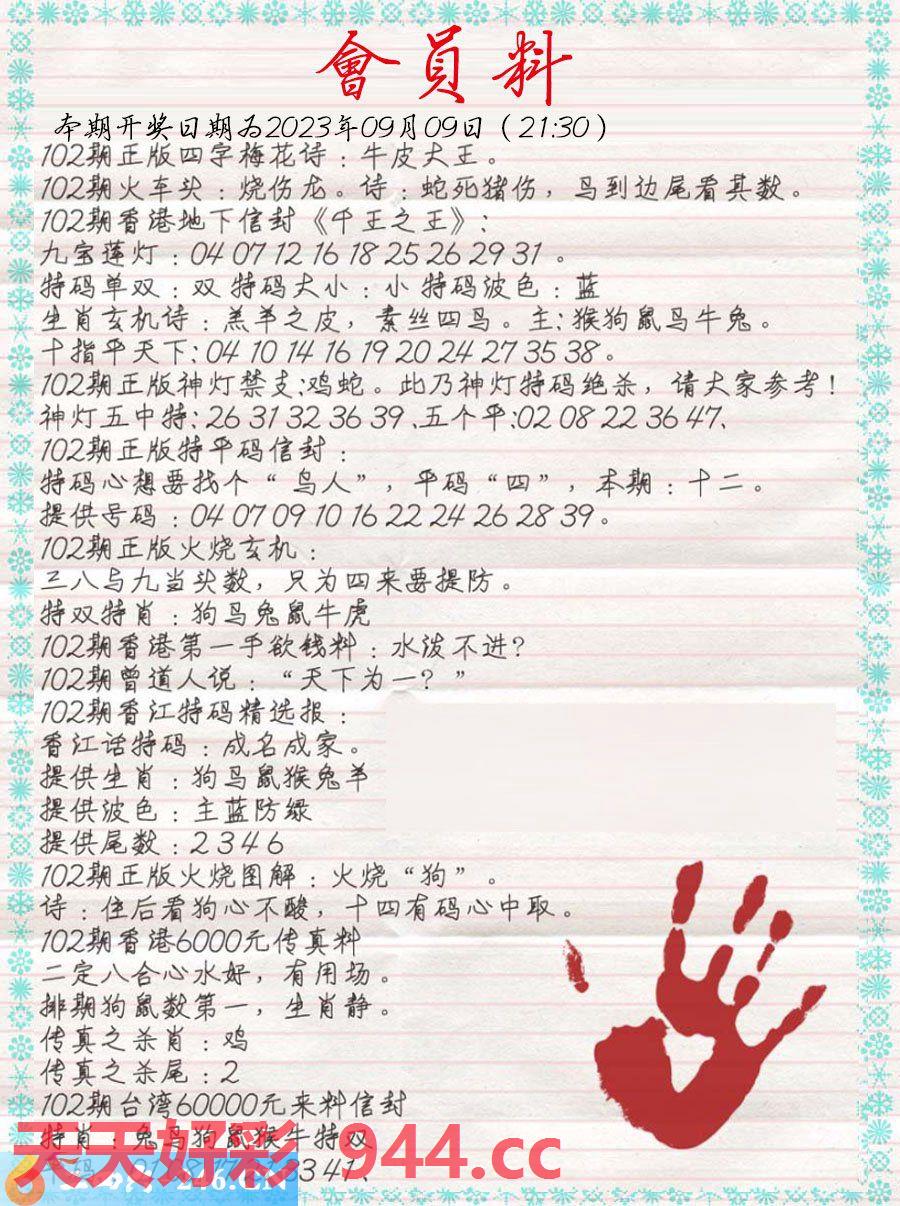 會員料
本期开奖日期为2023年09月09日（21:30）
102期正版四字梅花诗：牛皮大王。
102期火车头：烧伤龙。诗：蛇死猪伤，鸟到边尾看其数。
102期香港地下信封《千王之王》：
九宝莲灯：04 07 12 16 18 25 26 29 31 。
特码单双：双 特码大小：小 特码波色：蓝
生肖玄机诗：羔羊之皮，素丝四鸟。主：猴狗鼠鸟牛兔。
十指平天下：04 10 14 16 19 20 24 27 35 38。
102期正版神灯禁支：鸡蛇。此乃神灯特码绝杀，请大家参考！
神灯五中特：26 31 32 36 39、五个平：02 08 22 36 47、
102期正版特平码信封：
特码心想要找个“鸟人”，平码“四”，本期：十二。
提供号码：04 07 09 10 16 22 24 26 28 39。
102期正版火烧玄机：
三八与九当头数，只为四来要提防。
特双特肖：狗鸟兔鼠牛虎
102期香港第一手欲钱料：水泼不进？
102期曾道人说：“天下为一？”
102期香江特码精选报：
香江话特码：成名成家。
提供生肖：狗鸟鼠猴兔羊
提供波色：主蓝防绿
提供尾数：2 3 4 6
102期正版火烧图解：火烧“狗”。
诗：住后看狗心不酸，十四有码心中取。
102期香港6000元传真料
二定八合心水好，有用场。
排期狗鼠数第一，生肖静。
传真之杀肖：鸡
传真之杀尾：2
102期台湾60000元来料信封
特肖：兔鸟狗鼠猴牛特双
天天好彩 .944.cc
33 41、